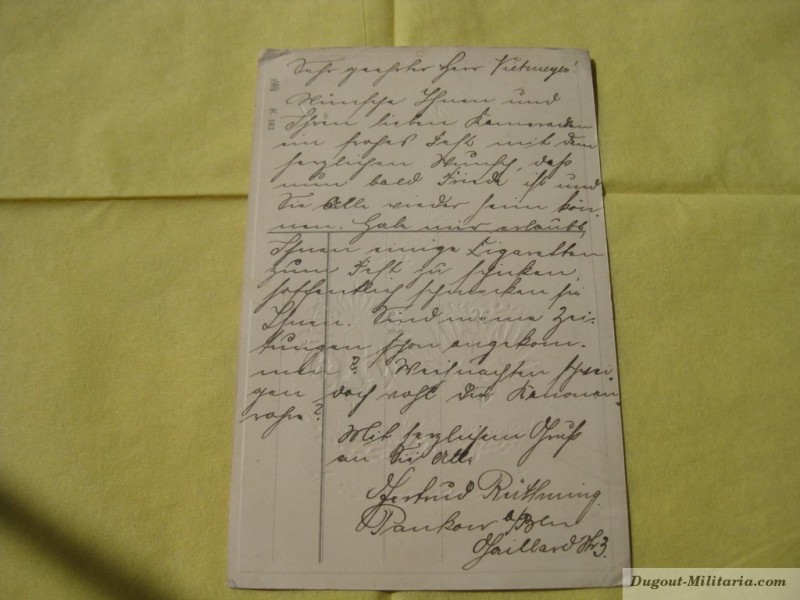 Sehr geehrter Herr Vietmeyer!
Wünsche Ihnen und
Ihren lieben Kameraden
ein frohes Fest mit dem
herzlichen Wunsch, daß
nun bald Friede ist und
Sie Alle wieder heim kön-
nen. Habe mir erlaubt,
Ihnen einige Zigaretten
zum Fest zu schicken,
hoffentlich schmecken sie
Ihnen. Sind meine Zei-
tungen schon angekom-
men? Weihnachten schwei-
gen doch wohl die Kanonen-
rohre?
Mit herzlichem Gruß
an Sie Alle
Gertrud Rüthning
Pankow b/Bln
Gaillard Str 3.
Dugout-Militaria.com